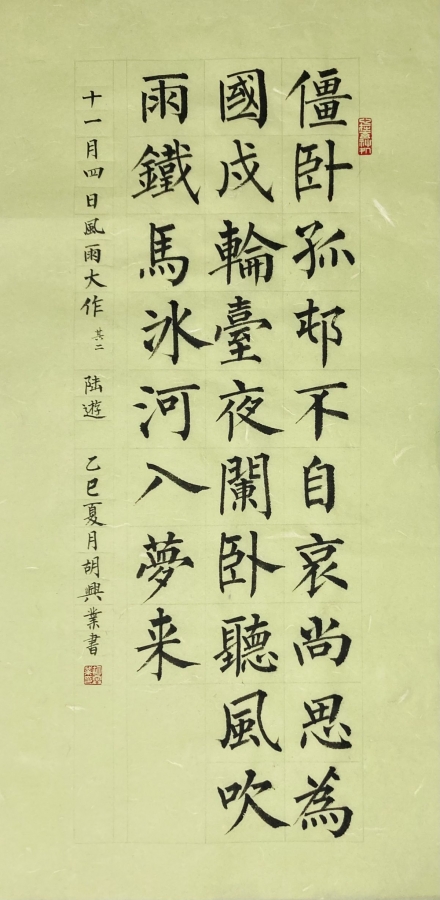 僵卧孤邨不自哀尚思為
國戍輪臺夜闌卧聽風吹
雨鐵馬冰河入夢来
十一月四日風雨大作 其二 陆遊 乙巳夏月胡興業書